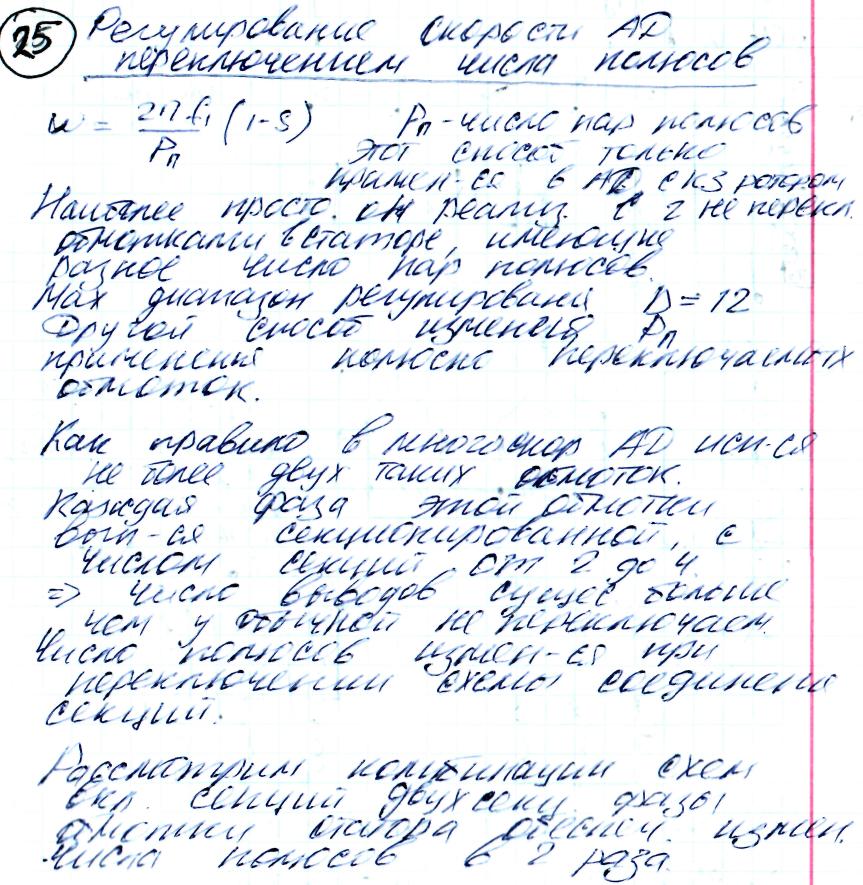 25
Регулирование скорости АД
переключением числа полюсов
ω = 2πf₁/Pп (1-S) Pп - число пар полюсов
этот способ только
примен-ся в АД с КЗ ротором
Наиболее просто он реализ. с 2 не перекл.
обмотками в статоре, имеющие
разное число пар полюсов.
Max диапазон регулирования D = 12
Другой способ изменения Pп
применения полюсно переключаемых
обмоток.
Как правило в многоскор АД исп-ся
не более двух таких обмоток.
Каждая фаза этой обмотки
вып-ся секционированной, с
числом секций от 2 до 4
=> число выводов сущес больше
чем у обычной не переключаем.
Число полюсов измен-ся при
переключении схемы соединена
секций.
Рассмотрим комбинации схем
вкл. секций двухсекц. фазы
обмотки статора обеспеч. измен.
числа полюсов в 2 раза.